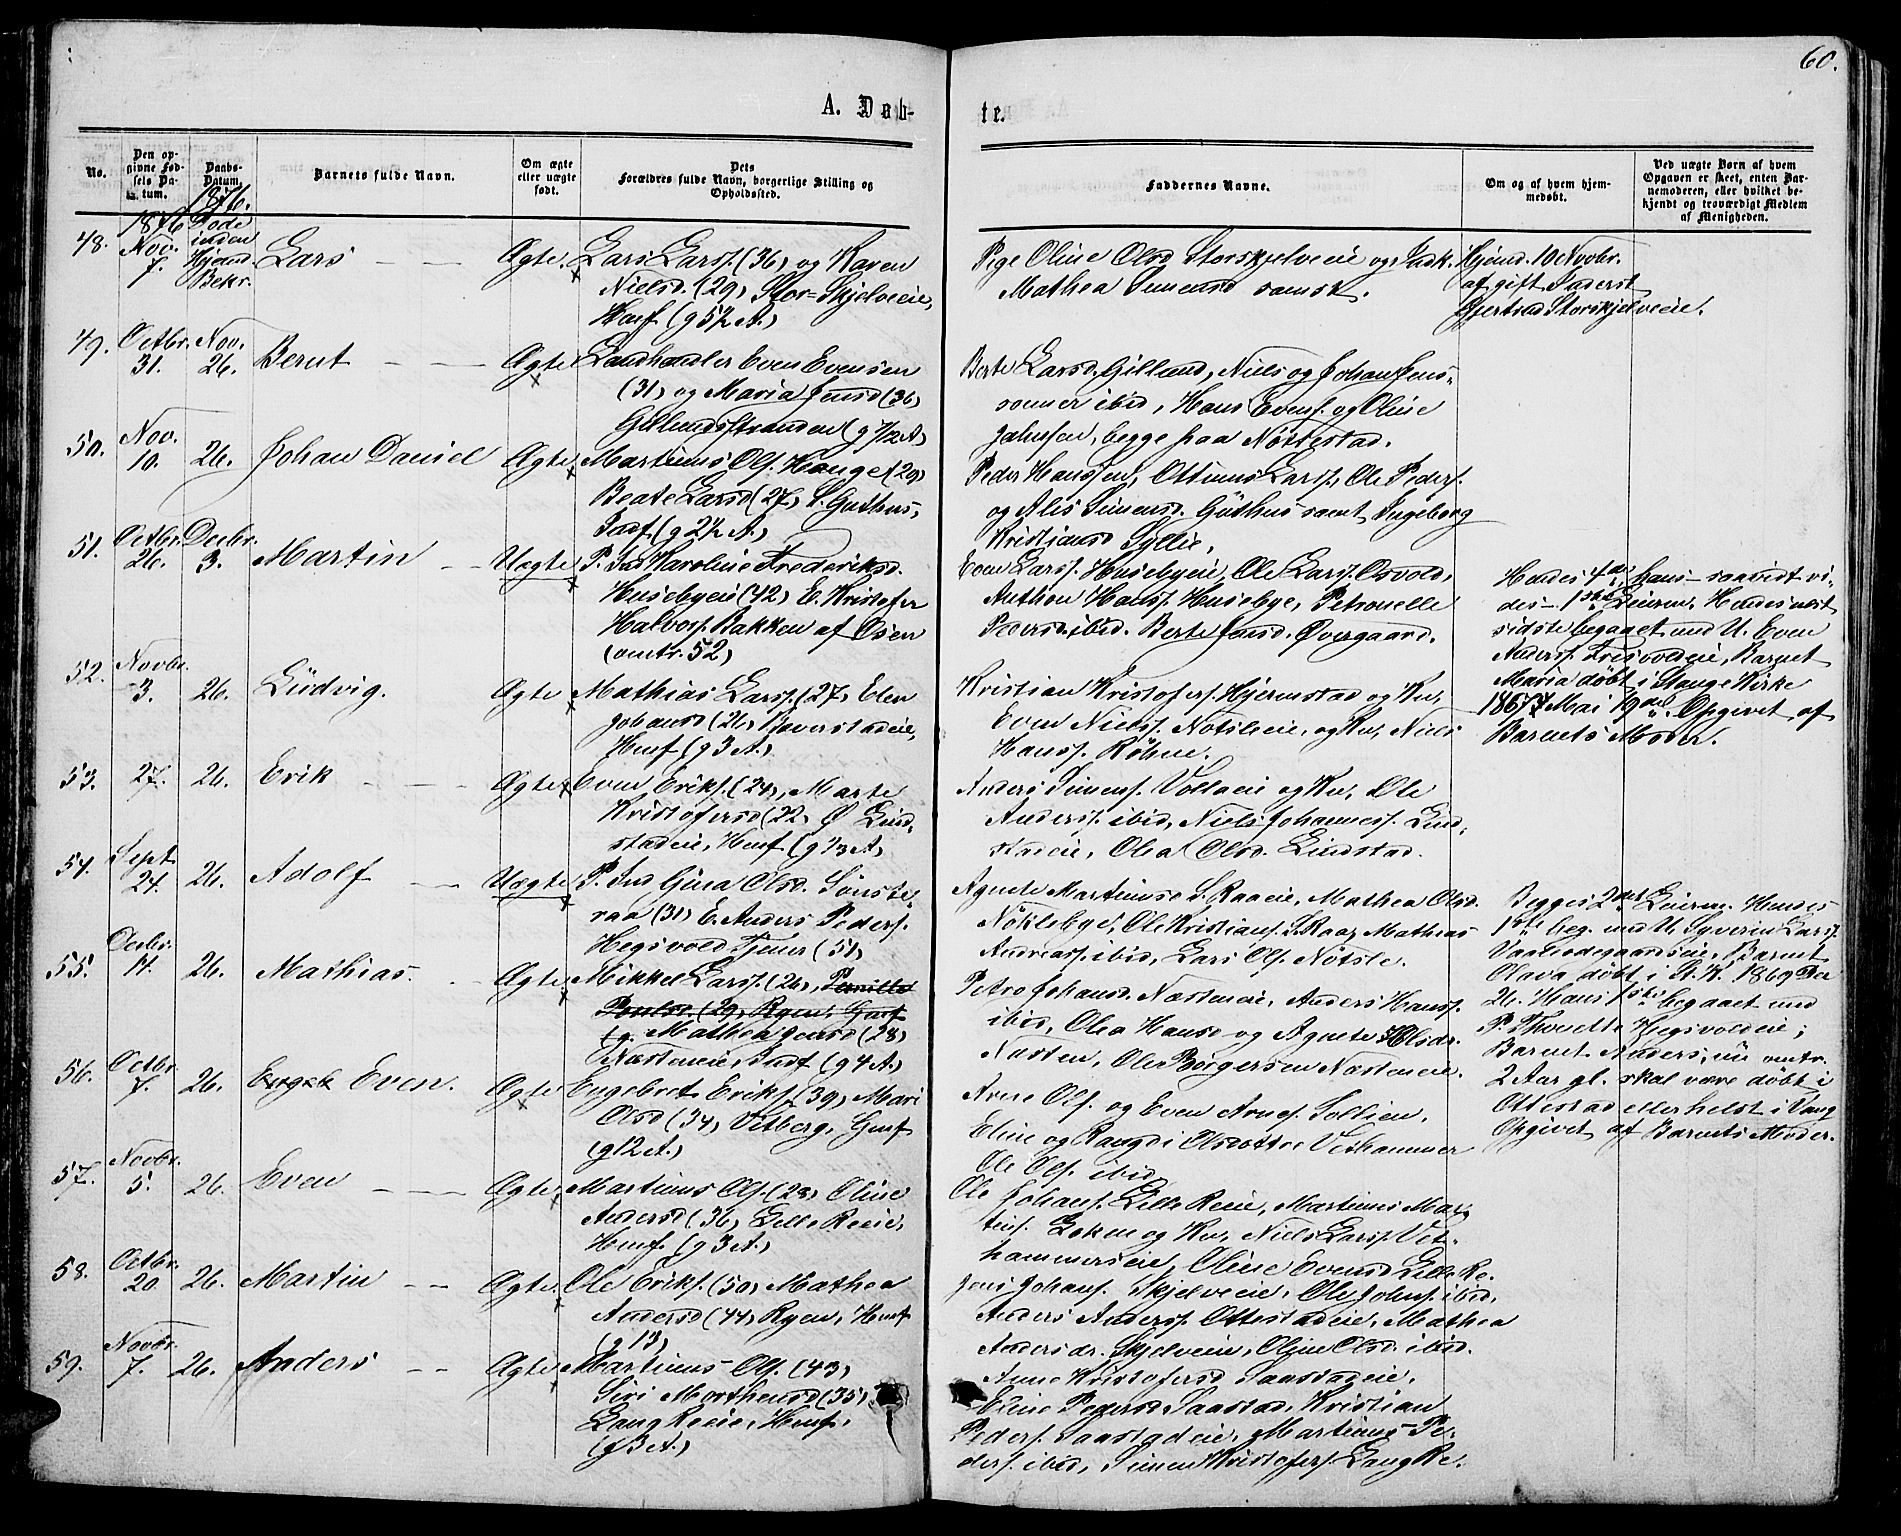 60.
A. Døb-
te.
No.
Den op-
givne Fød-
sels Da-
tum.
Daabs-
Datum.
Barnets fulde Navn.
Om ægte
eller uægte
født.
Dets
Forældres fulde Navn, borgerlige Stilling og
Opholdssted.
Faddernes Navne.
Om og af hvem hjem-
medøbt.
Ved uægte Børn af hvem
Opgaven er skeet, enten Bar-
nemoderen, eller hvilket be-
kjendt og troværdigt Medlem
af Menigheden.
1876
1876.
48.
Nov.
7.
Døde
inden
Hjemd.
Bekr.
Lars
Ægte.
Lars Larss. (36) og Karen
Nielsd. (29) Stor-Skjelveeie,
Husf (g 5½ A.)
Pige Oline Olsd Storskjelveeie og Indk.
Mathea Simensd samst.
Hjemd. 10 Novbr.
af gift Inderst
Gjertrud Storskjelveeie.
49.
Octbr.
31.
Nov.
26.
Bernt
Ægte
Landhandler Even Evensen
(31) og Maria Jensd (36)
Gillundsstranden (g ½ A)
Berte Larsd. Gillund, Niels og Johan Jens-
sønner ibid, Hans Evens. og Oline
begge paa Nøttestad.
50.
Nov.
10.
26.
Johan Daniel
Ægte
Martinus Ols. Hauge (29)
Beate Larsd (27) S. Guthus,
Indf (g 2½ A.)
Peder Hanssen, Ottinus Larss, Ole Peders.
og Alis Simensd. Güthus samt Ingeborg
Kristiansd Syllie,
51.
Octbr.
26.
Decbr.
3.
Martin
Uægte
P. Ind Karoline Frederiksd.
Husebyeie (42) E. Kristofer
Halvors. Bakken af Osen
(omtr. 52)
Even Larss. Husebyeie, Ole Larss. Osvold,
Anthon Hanss. Husebye, Petronelle
Pedersd. ibid. Berte Jensd. Øvergaard.
Hendes 4de, hans - saavidt vi-
des - 1ste Leierm. Hendes næst
sidste begaaet med U. Even
Anders. Frisvoldeie, Barnet
Maria døbt i Stange Kirke
1867 Mai 19de. Opgivet af
Barnets Moder.
52.
Novbr.
3.
26.
Lüdvig.
Ægte
Mathias Larss. (27) Elen
Johansd (26) Bjørstadeie,
Husf (g 3 A.)
Kristian Kristofers. Hjermstad og Ku,
Even Nielss. Nøtsleeie, og Ku, Niels
Hanss. Röhne.
53.
27.
26.
Erik
Ægte
Even Eriks. (24), Marte
Kristofersd (22, Ø Lind-
stadeie, Husf (g ⅓ A)
Anders Simens. Vollaeie og Ku, Ole
Anderss. ibid, Niels Johanness. Lind-
stadeie, Olea Olsd. Lindstad.
54.
Sept
24.
26.
Adolf
Uægte
P. Ind Gina Olsd. Sønste-
raa (31) E. Anders Peders.
Hegsvold Tjener (51)
Agnete Martinusd S. Raaeie, Mathea Olsd.
Nöklebye, Ole Kristians. S. Raa, Mathias
Andreass. ibid, Lars Ols. Nötsle.
Begges 2det Leierm. Hendes
1ste beg. med U. Syverin Larss.
Vaalodegaardseie, Barnet
Olava döbt i St. K. 1869
26. Hans 1ste begaaet med
P. Thorette Hegsvoldeie;
Barnet Anders, nu omtr.
2 Aar gl. skal være döbt i
Ottestad eller helst i Vang
Opgivet af Barnets Moder.
55.
Decbr.
11.
26.
Mathias.
Ægte
Mikkel Larss. (26), Pernille
Poulsd. (29) Ryen, Husf
(g. Mathea Jensd (28)
Næsteneie, Indf (g 4 A.)
Petro Johansd. Næsteneie, Anders Hanss.
ibid, Olea Hansd og Agnete Olsdr.
Næsten, Ole Börgersen Næsteneie.
56.
Octbr.
7.
26.
Engeb Even.
Ægte
Engebret Eriks. (39) Mari
Olsd (34) Vetberg, Husf
(g 12 A.)
Arne Ols. og Even Arnes. Sollien,
Eline og Rangdi Olsdøttre Vethammer
Ole Ols. ibid,
57.
Novbr.
5.
26.
Even
Ægte
Martinus Ols. (28) Oline
Andersd (36) Lille Reeie,
Husf. (g 3 A.)
Ole Johans. Lille Reeie, Martinus Mar-
tins. Løken og Ku, Niels Larss. Vet-
hammerseie, Oline Evensd Lille Re.
58.
Octbr.
20.
26.
Martin
Ægte.
Ole Eriks. (50) Mathea
Andersd (44) Ryen, Husf
(g 13)
Jens Johans. Skjelveeie, Ole Johns. ibid,
Anders Anderss. Ottestadeie, Mathea
Andersdr. Skjelveeie, Oline Olsd. ibid.
59.
Novbr.
7.
26.
Anders
Ægte
Martinus Ols. (43)
Siri Morthensd (35)
Lang Reeie, Husf.
Anne Kristofersd Saastadeie,
Eline Pedersd Saastad, Kristian
Peders. Saastadeie, Martinus Pe-
ders. ibid, Simen Kristofers. Lang Re.